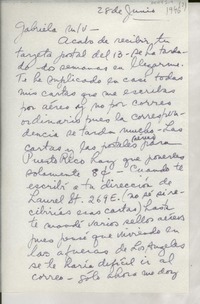 28 de Junio 1948
Gabriela M/V -
Acabo de recibir tu
tarjeta postal del 13 - Se ha tarda-
do dos semanas en llegarme.
Te he suplicado en casi todas
mis cartas que me escribas
por aéreo si no por correo
ordinario pues la correspon-
dencia se tarda mucho - Las
cartas y las postales para
Puerto Rico hay que ponerles
solamente 8¢ - Cuando te
escribí a tu dirección de
Laurel St. 269 E. (no sé si re-
cibirías esas cartas) hasta
te mandé varios sellos aéreos
pues pensé que viviendo en
las afueras de Los Angeles
se te haría difícil ir al
correo - Solo ahora me doy